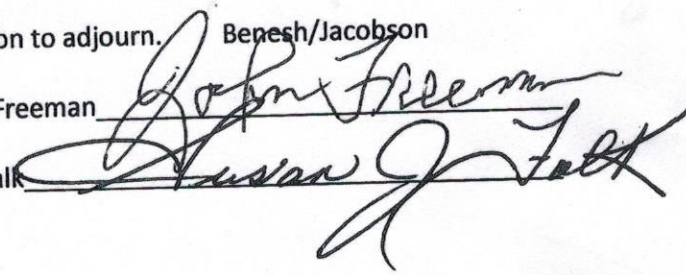 on to adjourn. Benesh/Jacobson
Freeman John Freeman
alk Susan J Falk